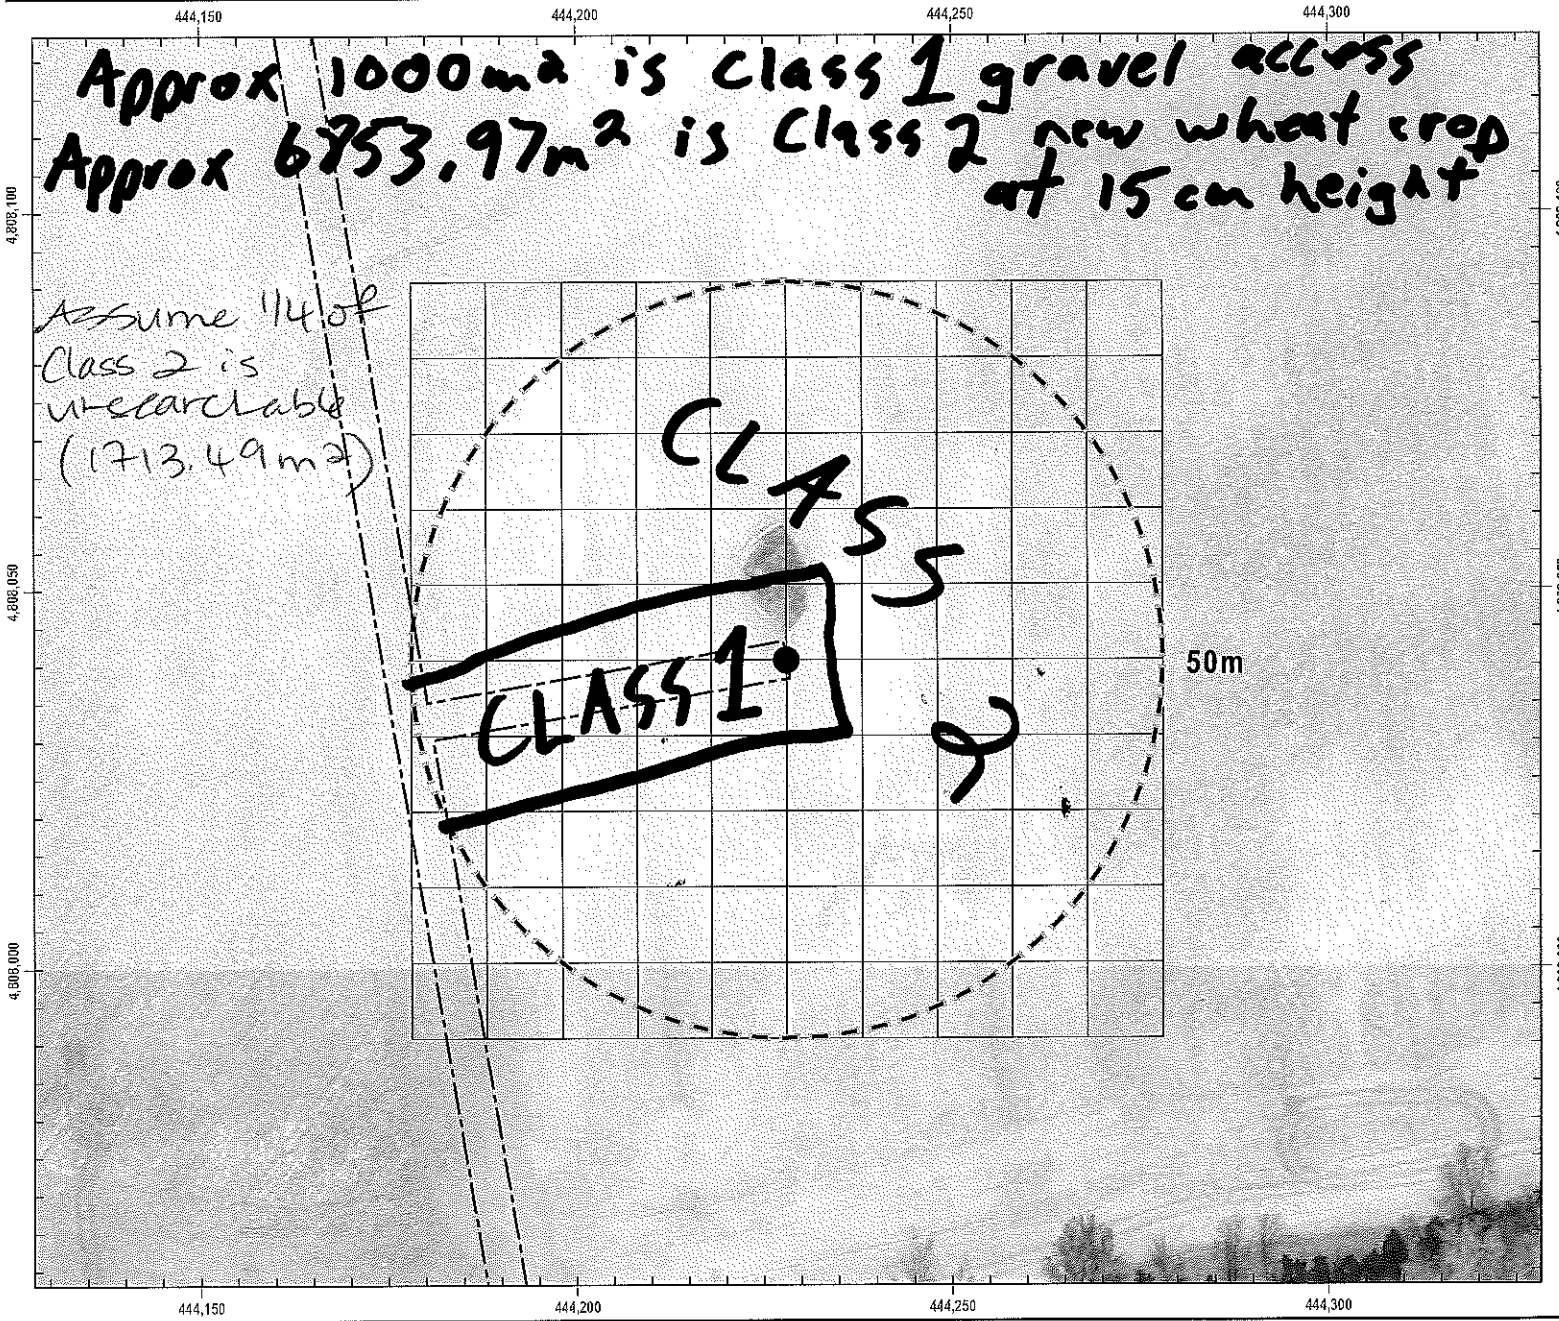 444,150 444,200 444,250 444,300
Approx 1000m2 is Class 1 gravel access
Approx 6853.97m2 is Class 2 new wheat crop
at 15 cm height
4,808,100
Assume 1/4 of
Class 2 is
unsearchable
(1713.49m2)
CLASS
4,808,050
CLASS 1
50m
2
4,808,000
444,150 444,200 444,250 444,300